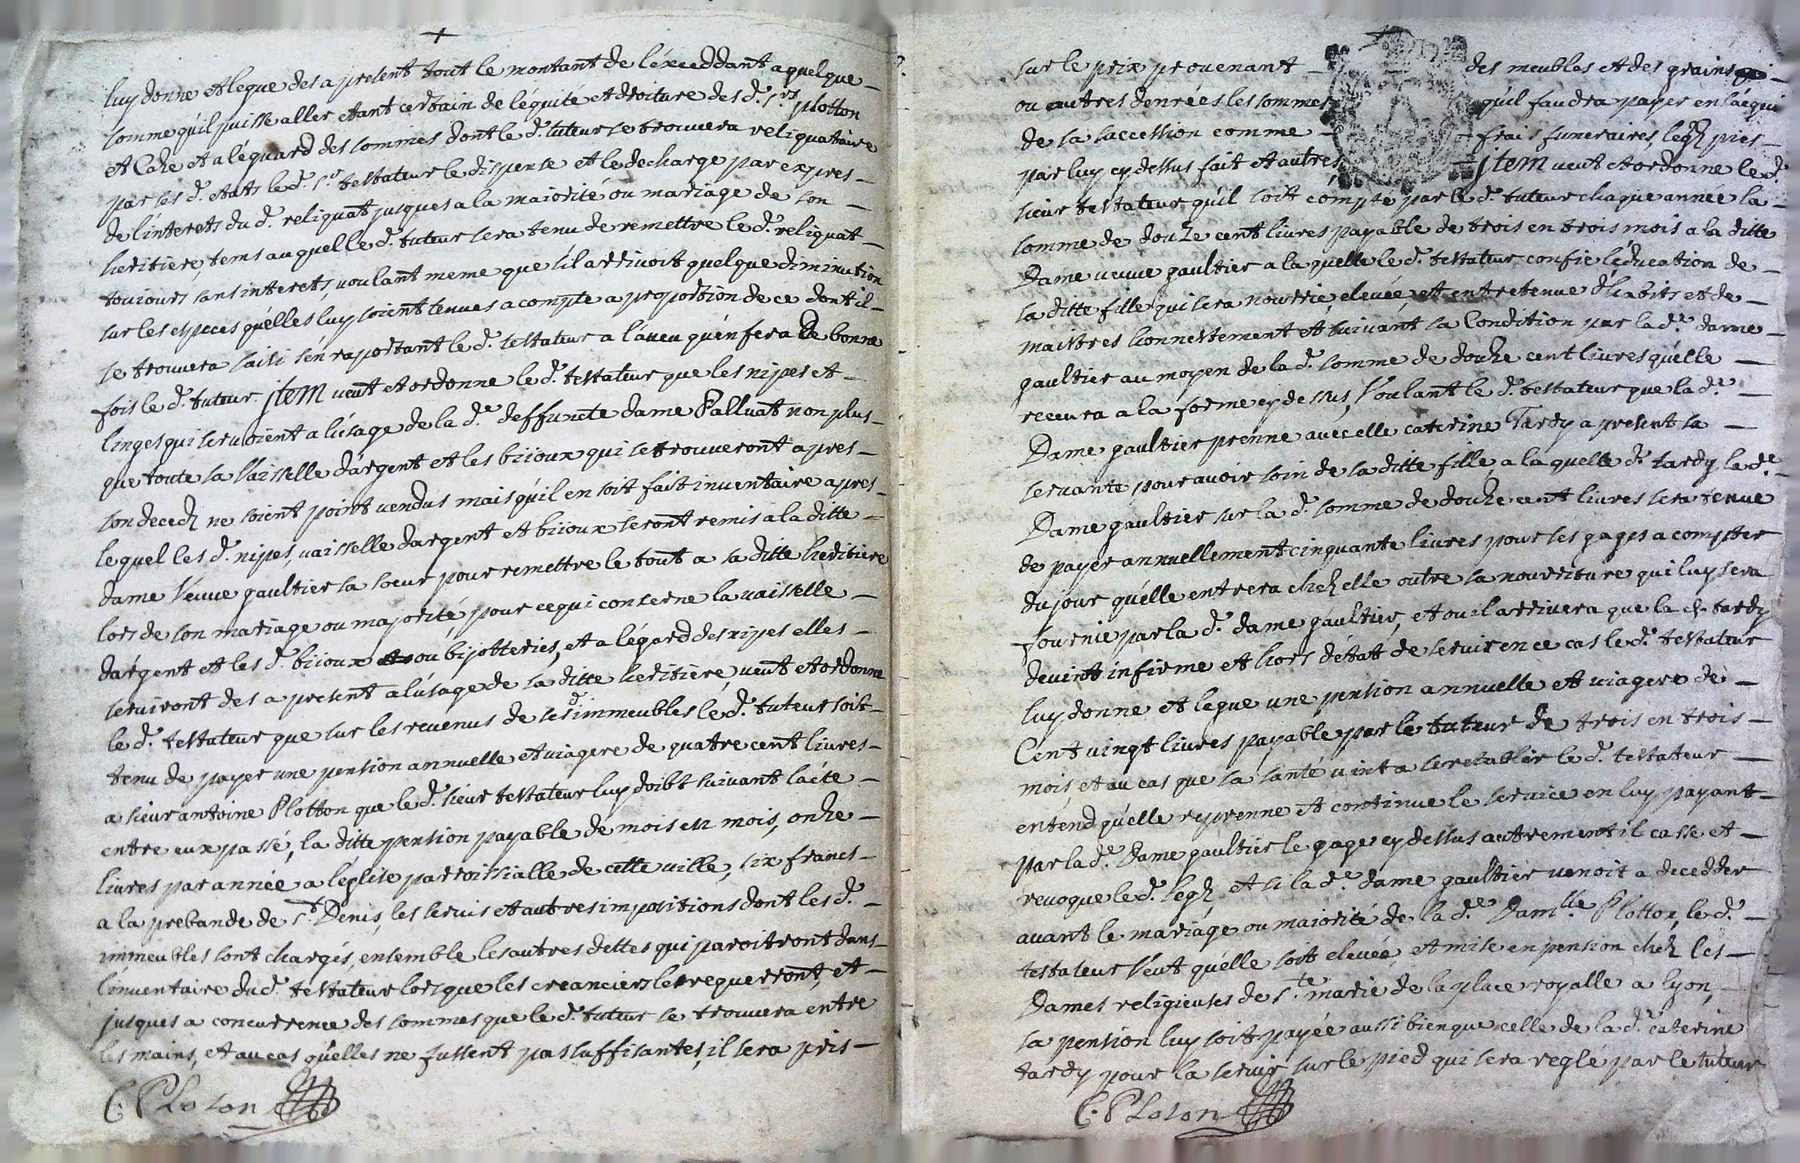 luy donne et legue des a present tout le montant de l'éxceddant a quelque
somme qu'il puisse aller, etant certain de l'équité et droiture des d. srs plotton
et Caze et a léguard des sommes dont le d. tuteur se trouvera reliquataire
par ses d. etats le d. sr testateur le dispense et le decharge par expres
de l'interets du d. reliquat jusques a la maiorite ou mariage de son
heritiere, tems auquel le d. tuteur sera tenu de remettre le d. reliquat
toujours sans interets, voulant meme que s'il arrivoit quelque diminution
sur les especes qu'elles luy soient tenues a compte a proportion de ce dont il
se trouvera saisi s'en raportant le d. testateur a l'aveu qu'en fera de bonne
fois le d. tuteur. jtem veut et ordonne le d. testateur que les nipes et
linges qui servoient a l'usage de la de deffunte dame Palluat non plus
que toute sa Vaisselle d'argent et les bijoux qui se trouveront apres
son decedz ne soient point vendus mais qu'il en soit fait inventaire apres
lequel les d. nipes, vaisselle dargent et bijoux seront remis a la ditte
dame Veuve gaultier sa soeur pour remettre le tout a sa ditte heritiere
lors de son mariage ou majorité pour ce qui conserne la vaisselle
dargent et les d. bijoux ou bijotteries, et a légard des nipes elles
serviront des a present a l'usage de sa ditte heritiere, veut et ordonne
le d. testateur que sur les revenus de ses d. immeubles le d. tuteur soit
tenu de payer une pention annuelle et viagere de quatre cent livres
a sieur antoine Plotton que le d. sieur testateur luy doibt suivant lacte
entre eux passé, la ditte pention payable de mois en mois, onze
livres par année a l'église parroissialle de cette ville, six francs
a la prebande de st Denis, les servis et autres impositions dont les d.
immeubles sont chargés, ensemble les autres dettes qui paroitront dans
l'inventaire du d. testateur lorsque les creanciers le requerront, et
jusques a concurrence des sommes que le d. tuteur se trouvera entre
les mains, et au cas qu'elles ne fussent pas suffisantes, il sera pris
C. PLoton
sur le prix provenant des meubles et des grains
ou autres denrées les sommes qu'il faudra payer en l'acqui
de sa succession comme frais funeraires, legz pies
par luy cy dessus fait et autres jtem veut et ordonne le d.
sieur testateur qu'il soit compté par le d. tuteur chaque année la
somme de douze cent livres payable de trois en trois mois a la ditte
Dame veuve gaultier a la quelle le d. testateur confie l'éducation de
sa ditte fille qui sera nourrie, elevée, et entretenue d'habits et de
maistres honnestement et suivant sa Condition par la de dame
gaultier au moyen de la d. somme de douze cent livres qu'elle
recevra a la forme cy dessus, Voulant le d. testateur que la de
Dame gaultier prenne avec elle caterine Tardy a present sa
servante pour avoir soin de sa ditte fille a la quelle de tardy la de
Dame gaultier sur la d. somme de douze cent livres sera tenue
de payer annuellement cinquante livres pour ses gages a compter
du jour quelle entrera chez elle outre sa nourriture qui luy sera
fournie par la d. dame gaultier, et ou il arrivera que la de tardy
devint infirme et hors d'état de servir en ce cas le d. testateur
luy donne et legue une pention annuelle et viagere de
Cent vingt livres payable par le tuteur de trois en trois
mois, et au cas que sa santé vint a se retablir le d. testateur
entend qu'elle reprenne et continue le service en luy payant
par la de Dame gaultier le gage cy dessus autrement il casse et
revoque le d. legz, et si la de dame gaultier venoit a decedder
avant le mariage ou maiorité de la de Damlle Plotton, le d.
testateur Veut qu'elle soit elevée, et mise en pention chez les
Dames religieuses de ste marie de la place royalle a lyon,
sa pention luy soit payée aussi bien que celle de la d. caterine
tardy pour la servir sur le pied qui sera regle par le tuteur
C. PLoton